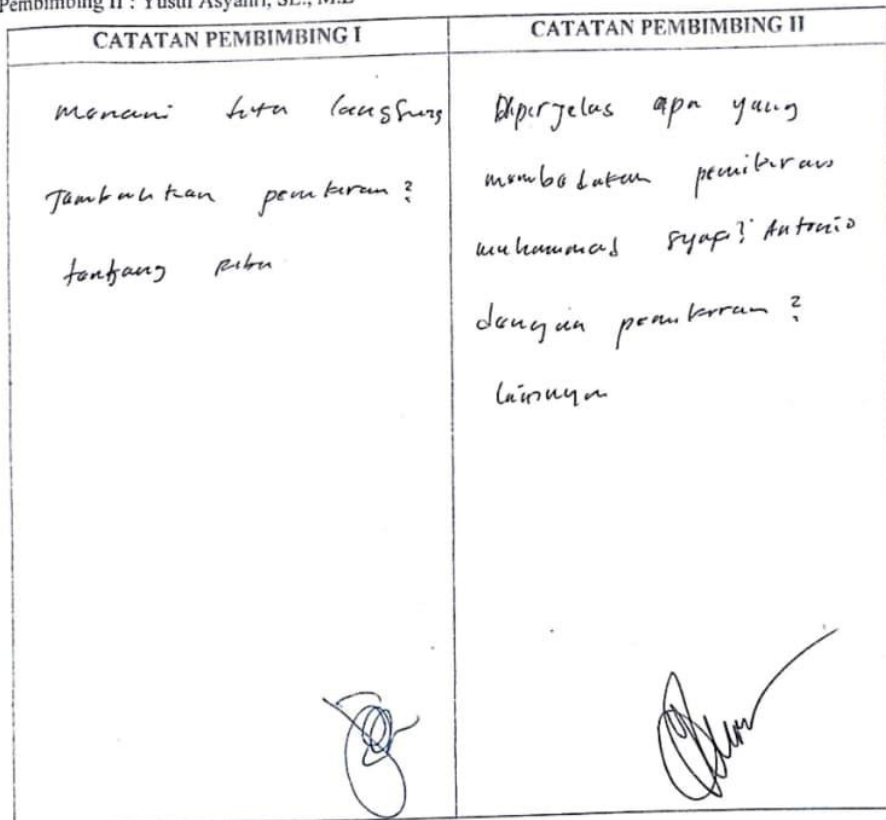 Pembimbing II : Yusuf Asyahri, SE., M.E
CATATAN PEMBIMBING I
CATATAN PEMBIMBING II
menani kutu langsung
Tambahkan pemikiran²
tentang riba
Diperjelas apa yang
membedakan pemikiran
muhammad syafi'i Antonio
dengan pemikiran²
lainnya